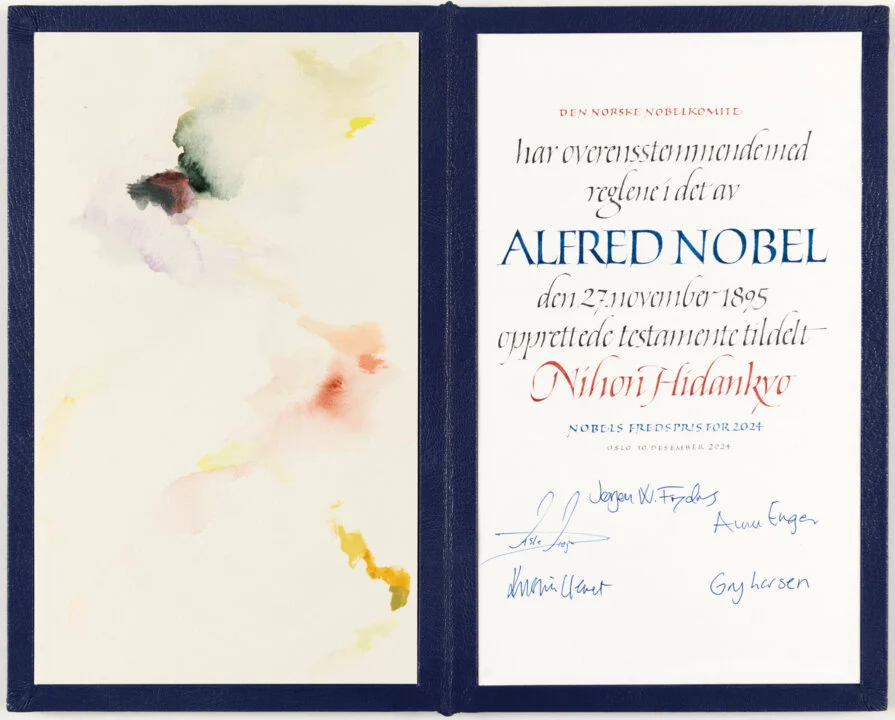 DEN NORSKE NOBELKOMITE
har overensstemmende med
reglene i det av
ALFRED NOBEL
den 27. november 1895
opprettede testamente tildelt
Nihon Hidankyo
NOBELS FREDSPRIS FOR 2024
OSLO 10. DESEMBER 2024
Jørgen W. Frydnes
Anne Enger
Asle Toje
Kristin Clemet
Gry Larsen